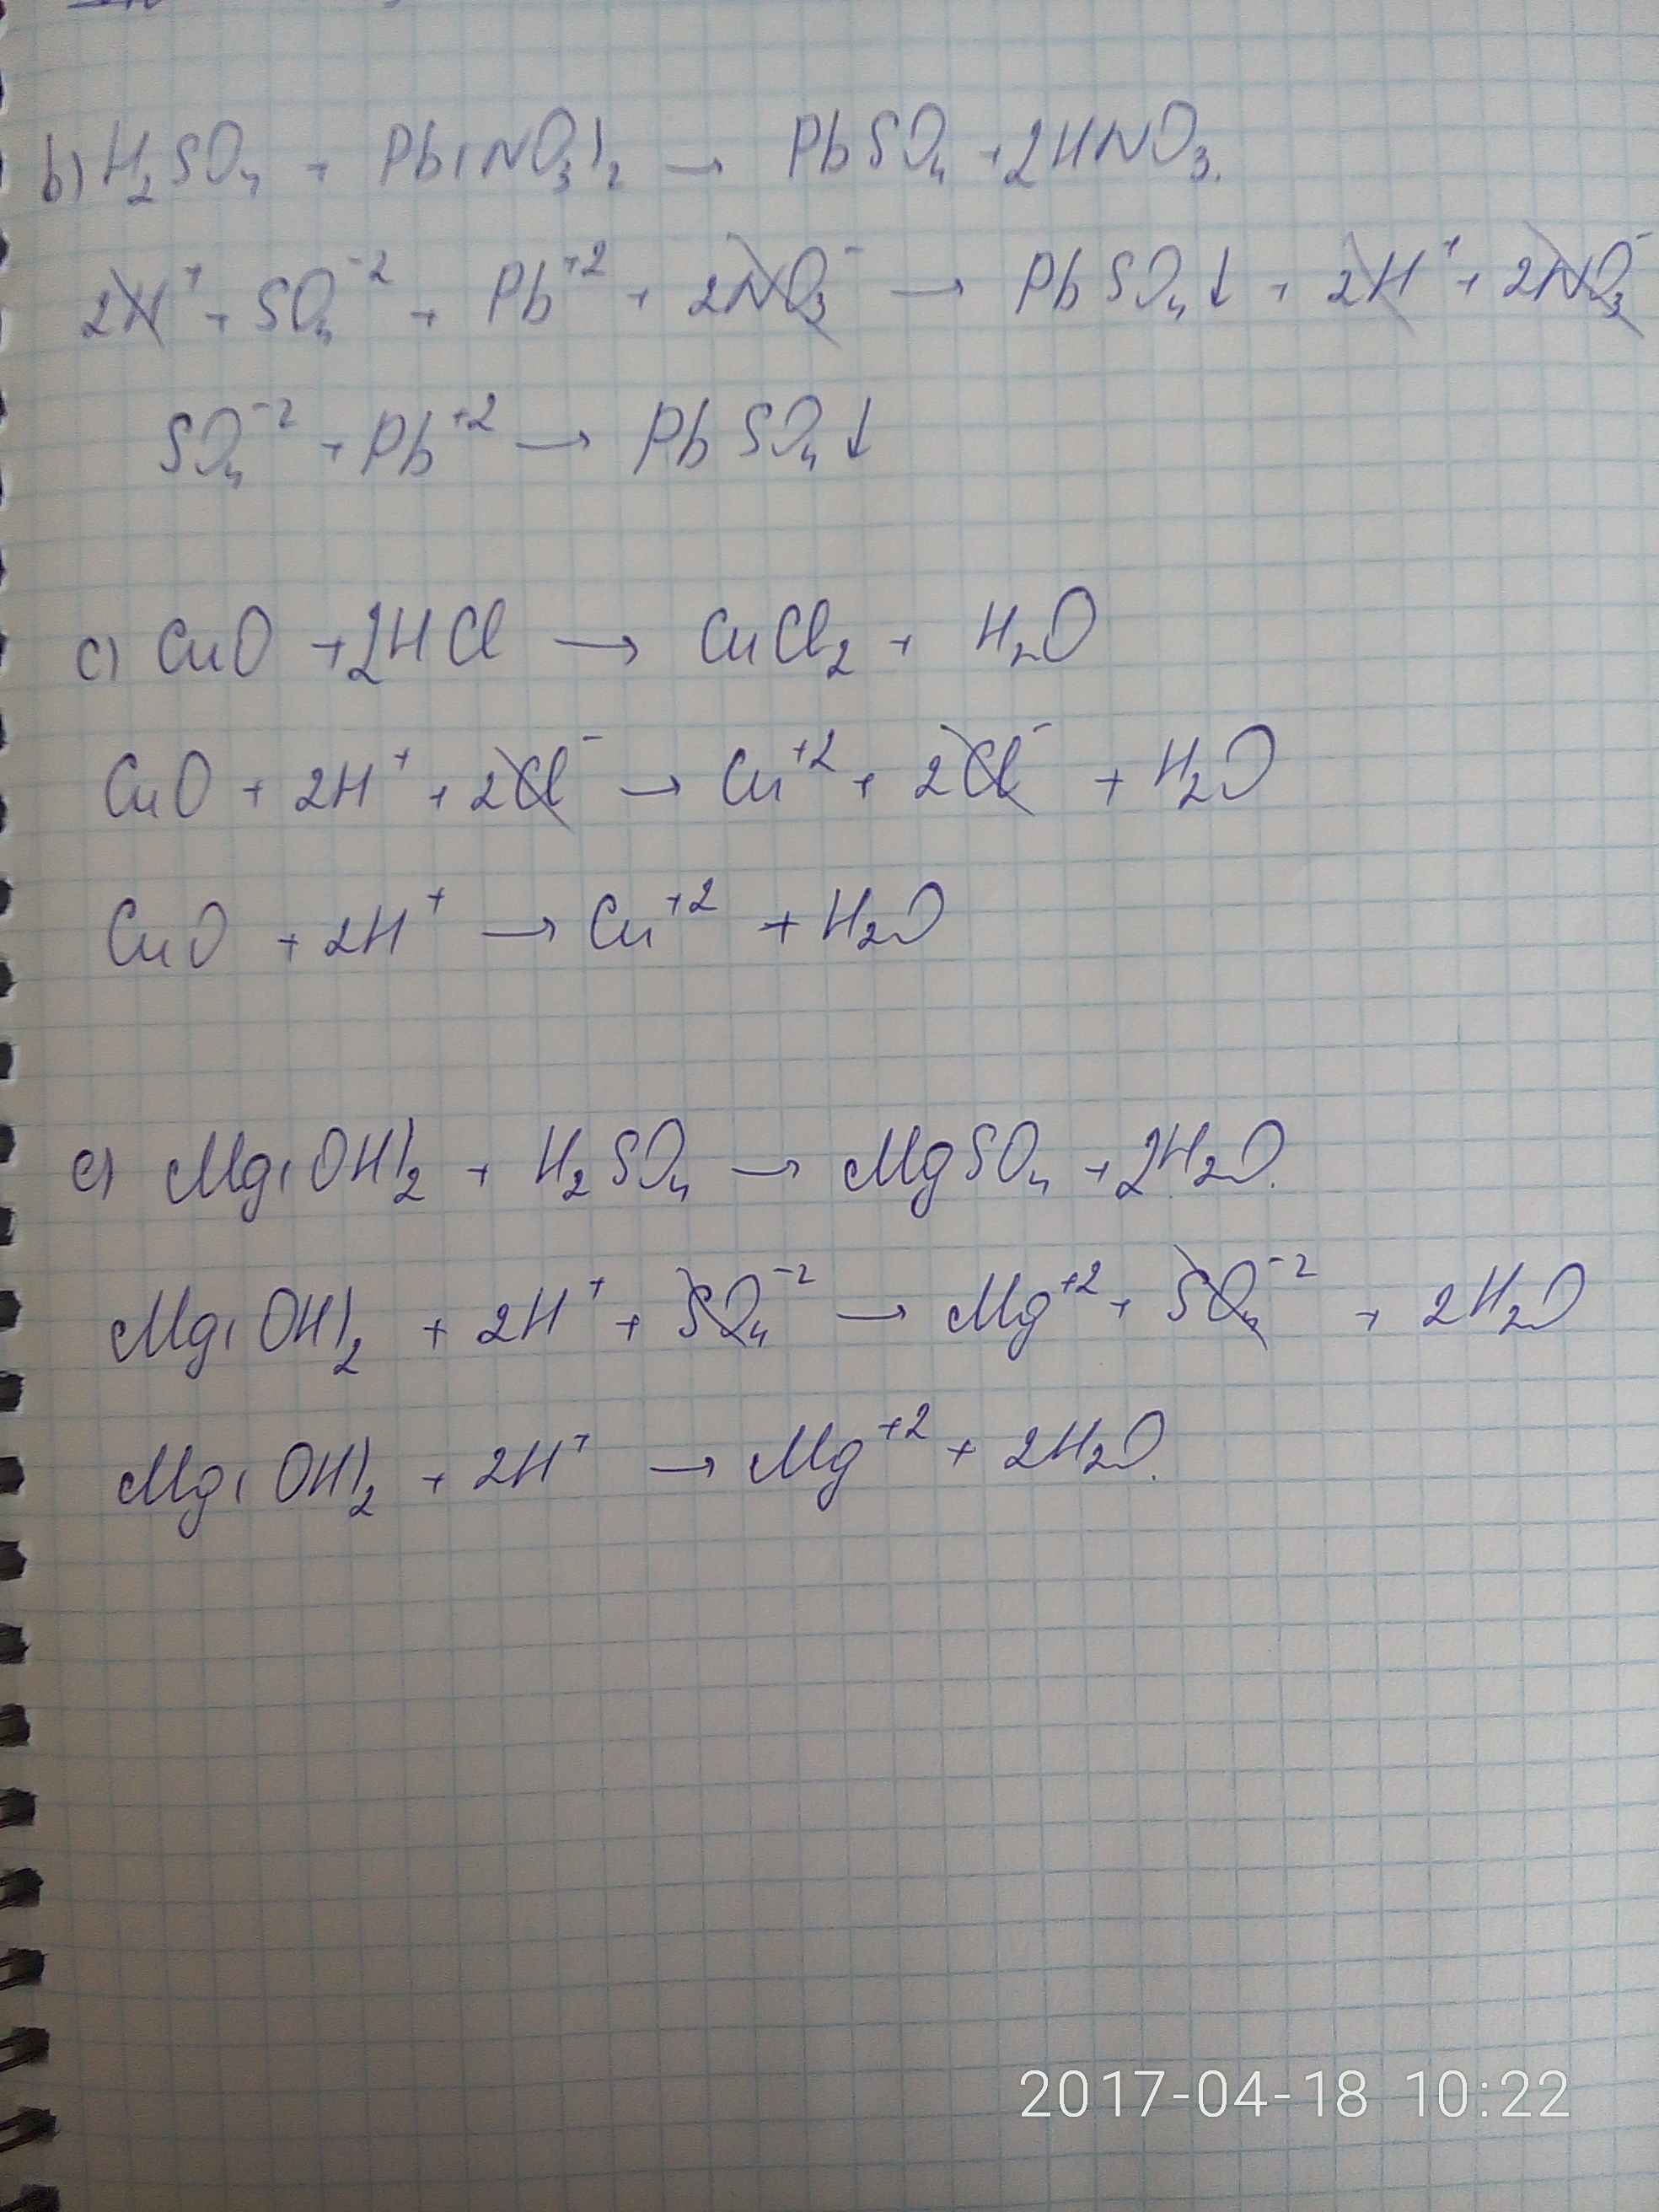 b) H₂SO₄ + Pb(NO₃)₂ → PbSO₄ + 2HNO₃.
2H⁺ + SO₄⁻² + Pb⁺² + 2NO₃⁻ → PbSO₄↓ + 2H⁺ + 2NO₃⁻
SO₄⁻² + Pb⁺² → PbSO₄↓
c) CuO + 2HCl → CuCl₂ + H₂O
CuO + 2H⁺ + 2Cl⁻ → Cu⁺² + 2Cl⁻ + H₂O
CuO + 2H⁺ → Cu⁺² + H₂O
e) Mg(OH)₂ + H₂SO₄ → MgSO₄ + 2H₂O.
Mg(OH)₂ + 2H⁺ + SO₄⁻² → Mg⁺² + SO₄⁻² + 2H₂O
Mg(OH)₂ + 2H⁺ → Mg⁺² + 2H₂O.
2017-04-18 10:22